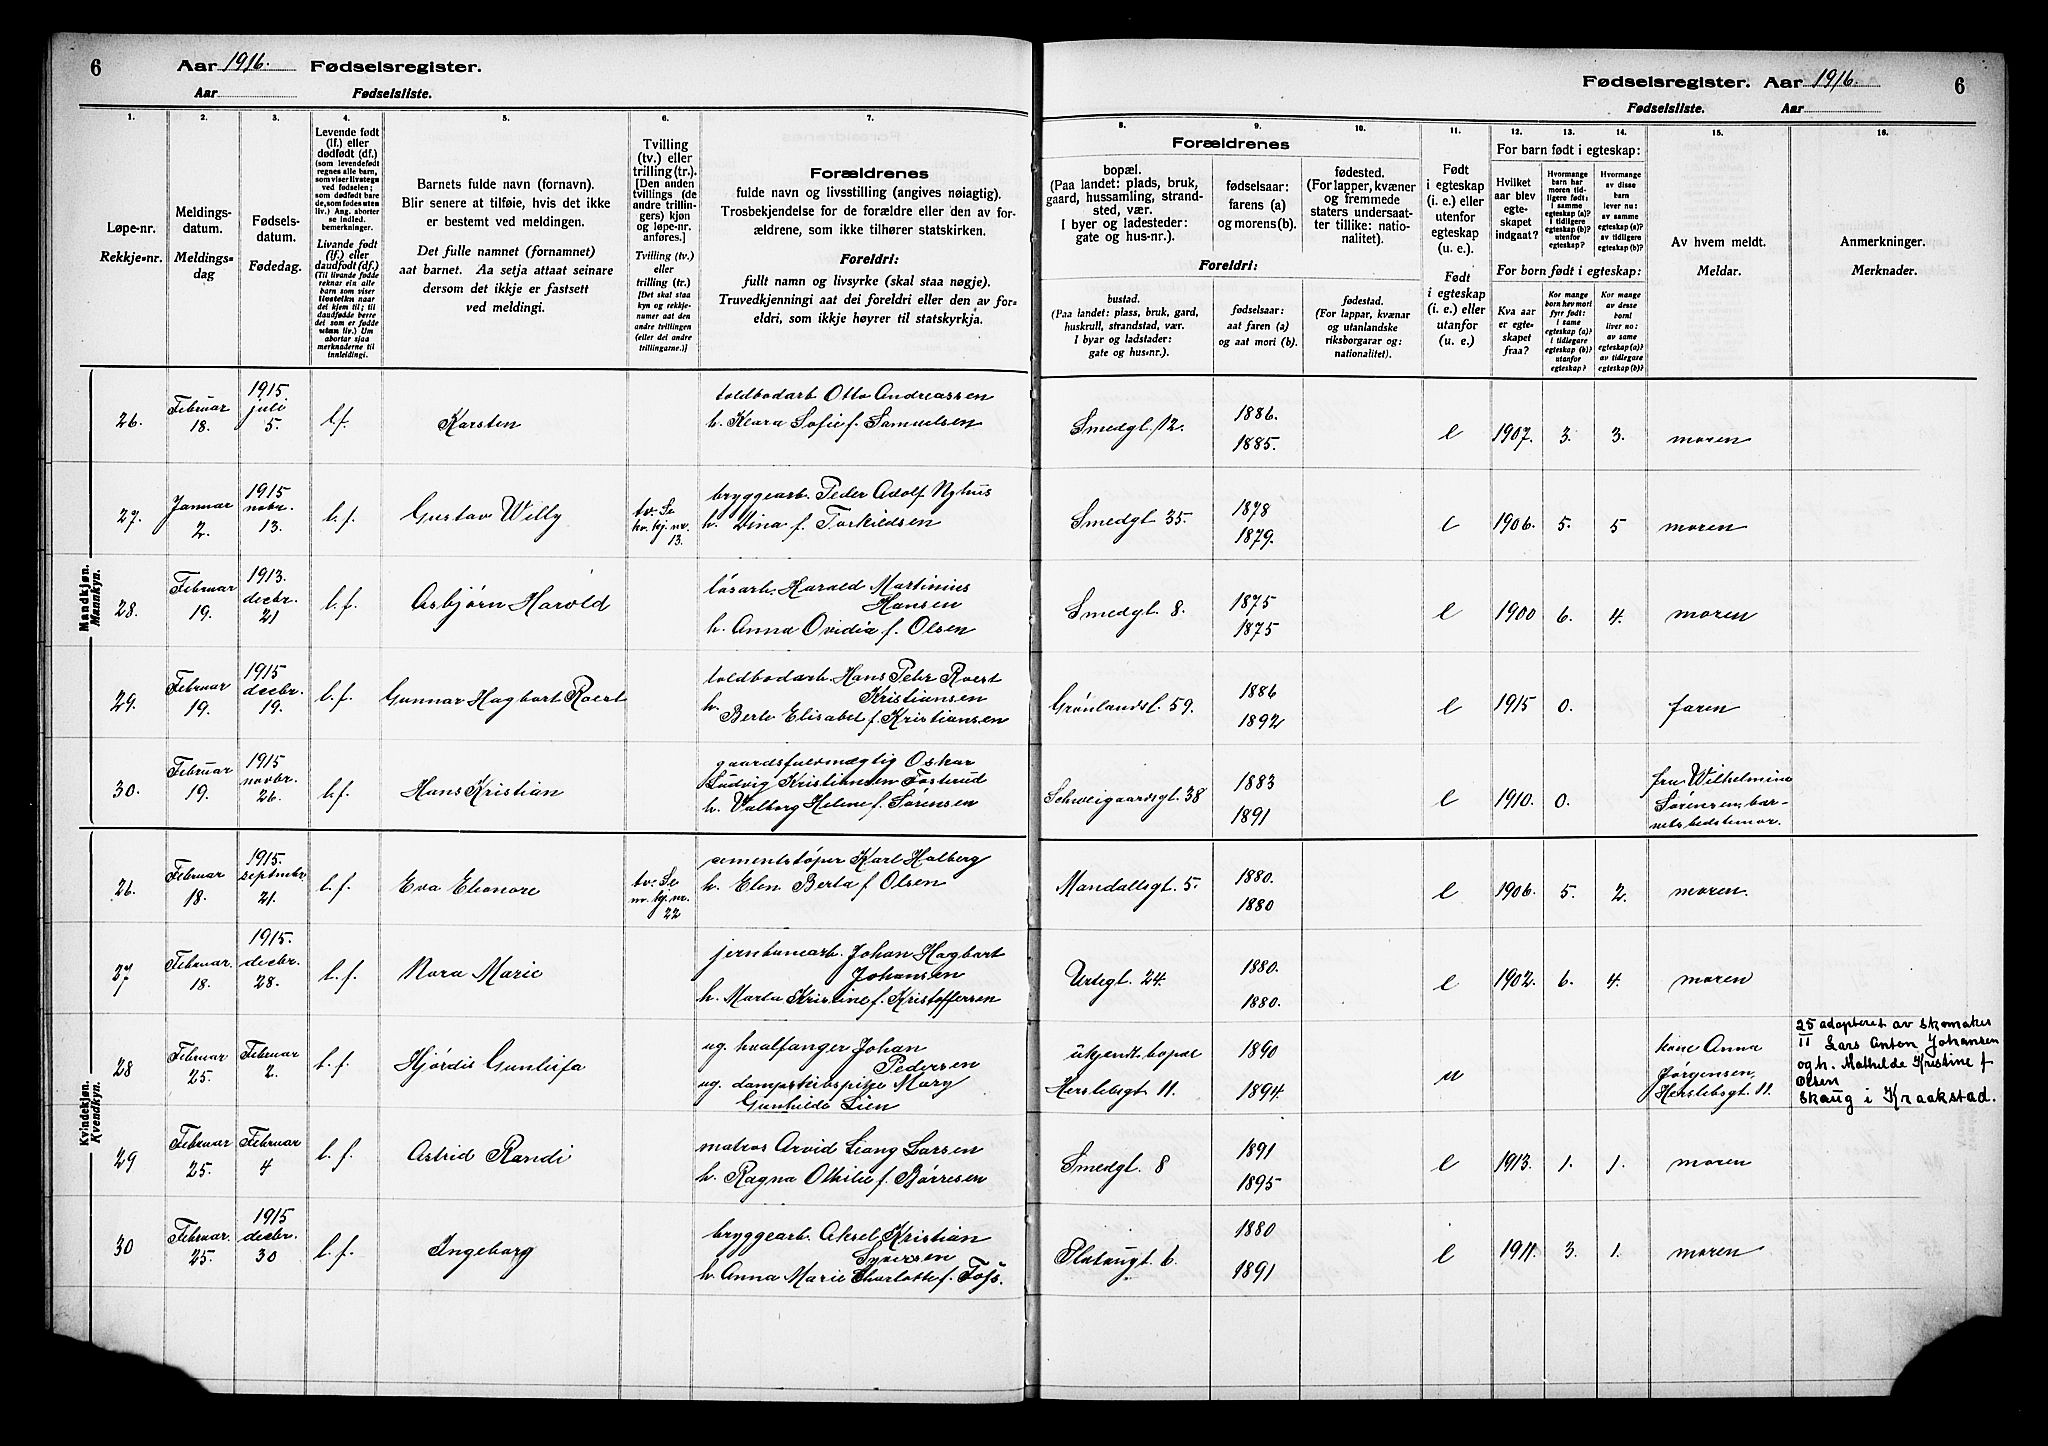 6
Aar 1916. Fødselsregister.
Aar Fødselsliste.
Fødselsregister. Aar 1916.
6
Fødselsliste. Aar
1. 2. 3. 4. 5. 6. 7. 8. 9. 10. 11. 12. 13. 14. 15. 16.
Løpe-nr.
Rekkje-nr.
Meldings-
datum.
Meldings-
dag
Fødsels-
datum.
Fødedag.
Levende født
(lf.) eller
dødfødt (df.)
(som levendefødt
regnes alle barn,
som viser livstegn
ved fødselen;
som dødfødt bare
de, som fødes uten
liv.) Ang. aborter
se indled.
bemerkninger.
Livande født
(lf.) eller
daudfødt (df.)
(Til livande fødde
reknar ein alle
barn som viser
livsteikn naar
dei kjem til; til
daudfødde berre
dei som er fødde
utan liv.) Um
abortar sjaa
merknaderne til
innleidingi.
Barnets fulde navn (fornavn).
Blir senere at tilføie, hvis det ikke
er bestemt ved meldingen.
Det fulle namnet (fornamnet)
aat barnet. Aa setja attaat seinare
dersom det ikkje er fastsett
ved meldingi.
Tvilling
(tv.) eller
trilling (tr.)
[Den anden
tvillings (de
andre trillin-
gers) kjøn
og løpe-nr.
anføres.]
Tvilling (tv.)
eller
trilling (tr.)
[Det skal staa
kyn og rekkje-
numer aat den
andre tvillingen
(eller dei andre
trillingarne.)]
Forældrenes
fulde navn og livsstilling (angives nøiagtig).
Trosbekjendelse for de forældre eller den av for-
ældrene, som ikke tilhører statskirken.
Foreldri:
fullt namn og livsyrke (skal staa nøgje).
Truvedkjenningi aat dei foreldri eller den av for-
eldri, som ikkje høyrer til statskyrkja.
Forældrenes
bopæl.
(Paa landet: plads, bruk,
gaard, hussamling, strand-
sted, vær.
I byer og ladesteder:
gate og hus-nr.).
fødselsaar:
farens (a)
og morens (b).
fødested.
(For lapper, kvæner
og fremmede
staters undersaat-
ter tillike: natio-
nalitet).
Foreldri:
bustad.
(Paa landet: plass, bruk, gard,
huskrull, strandstad, vær.
I byar og ladstader:
gate og hus-nr.).
fødselsaar:
aat faren (a)
og aat mori (b).
fødestad.
(For lappar, kvænar
og utanlandske
riksborgarar og:
nationalitet).
Født
i egteskap
(i. e.) eller
utenfor
egteskap
(u. e.).
Født
i egteskap
(i. e.) eller
utanfor
(u. e.).
For barn født i egteskap:
Hvilket
aar blev
egte-
skapet
indgaat?
Hvormange
barn har
moren tid-
ligere født:
i samme
egteskap (a)?
i tidligere
egteskap (b)?
utenfor
egteskap?
Hvormange
av disse
barn
lever nu:
av samme
egteskap (a)?
av tidligere
egteskap (b)?
For born født i egteskap:
Kva aar
er egte-
skapet
fraa?
Kor mange
born hev mori
fyrr født:
i same
egteskap (a)?
i tidlegare
egteskap (b)?
utanfor
egteskap?
Kor mange
av desse
borni
liver no:
av same
egteskap (a)?
av tidlegare
egteskap (b)?
Av hvem meldt.
Meldar.
Anmerkninger.
Merknader.
Mandkjøn.
Mannkyn.
26. Februar 18. 1915 juli 5. l.f. Karsten toldbodarb Otto Andreassen
h. Klara Sofie f. Samuelsen Smedgt. 12. 1886. 1885. e 1907. 3. 3. moren
27. Januar 2. 1915 nobr. 13. l.f. Gustav Willy tv. Se kv. kj. nr. 13. bryggearb. Peder Adolf Nyhus
h. Dina f. Torkildsen Smedgt 35. 1878 1879. e 1906. 5. 5 moren
28. Februar 19. 1913. decbr. 21 l.f. Asbjørn Harold løsarb. Harald Martinius
Hansen
h. Anna Ovidia f. Olsen Smedgt. 8. 1875 1875 e 1900 6. 4. moren
29. Februar 19. 1915 decbr. 19. l.f. Gunnar Hagbart Roert toldbodarb. Hans Petr Roert
Kristiansen
h. Berte Elisabet f. Kristiansen Grønlandsl. 59. 1886 1892 e 1915 0. faren
30. Februar 19. 1915 novbr. 26. l.f. Hans Kristian gaardsfuldmægtig Oskar
Ludvig Kristiansen Fosterud
h. Valborg Helene f. Sørensen Schweigaardsgt. 38 1883 1891 e 1910. 0. fru Wilhelmina
Sørensen, bar-
nets bedstemor.
Kvindekjøn.
Kvendkyn.
26. Februar 18. 1915. septmbr. 21. l.f. Eva Elionore tv. Se nr. kj. nr. 22 cementstøper Karl Halberg
h. Elen Berta f Olsen Mandallsgt. 5. 1880. 1880 e 1906. 5. 2. moren.
27 Februar. 18. 1915. decbr. 28. l.f. Nora Marie jernbanearb. Johan Hagbart
Johansen
h. Marta Kristine f. Kristoffersen Urtegt. 24. 1880. 1880. e 1902. 6. 4. moren
28 Februar 25. Februar 2. l.f. Hjørdis Gunleifa ug. hvalfanger Johan
Pedersen
ug. Mary
Gunhilde Lien ukjendt bopæl
Herslebsgt 11. 1890 1894 u kone Anna
Jørgensen,
Herslebsgt. 11. 25/11 adopteret av skomaker
Lars Anton Johansen
og h. Mathilde Kristine f
Olsen
Skaug i Kraakstad.
29 Februar 25. Februar 4 l.f. Astrid Randi matros Arvid Liang Larsen
h. Ragna Othilie f. Børresen Smedgt. 8 1891 1895 e 1913. 1. 1. moren
30 Februar. 25. 1915 decbr. 30 l.f. Ingeborg bryggearb. Aksel Kristian
Syversen
h. Anna Marie Charlotte f. Foss. Platougt. 6. 1880 1891 e 1911. 3. 1. moren